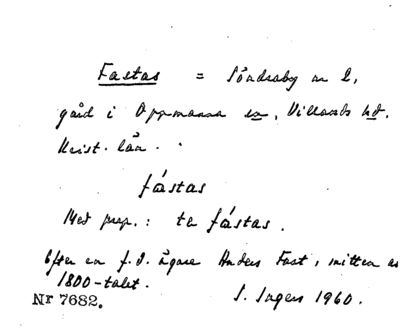 Fastas = Söndraby nr 2,
gård i Oppmanna sn, Villands hd.
Krist. län.
fástas
Med prep.: te fástas.
Efter en f.d. ägare Anders Fast, mitten av
1800-talet.
Nr 7682. S. Ingers 1960.